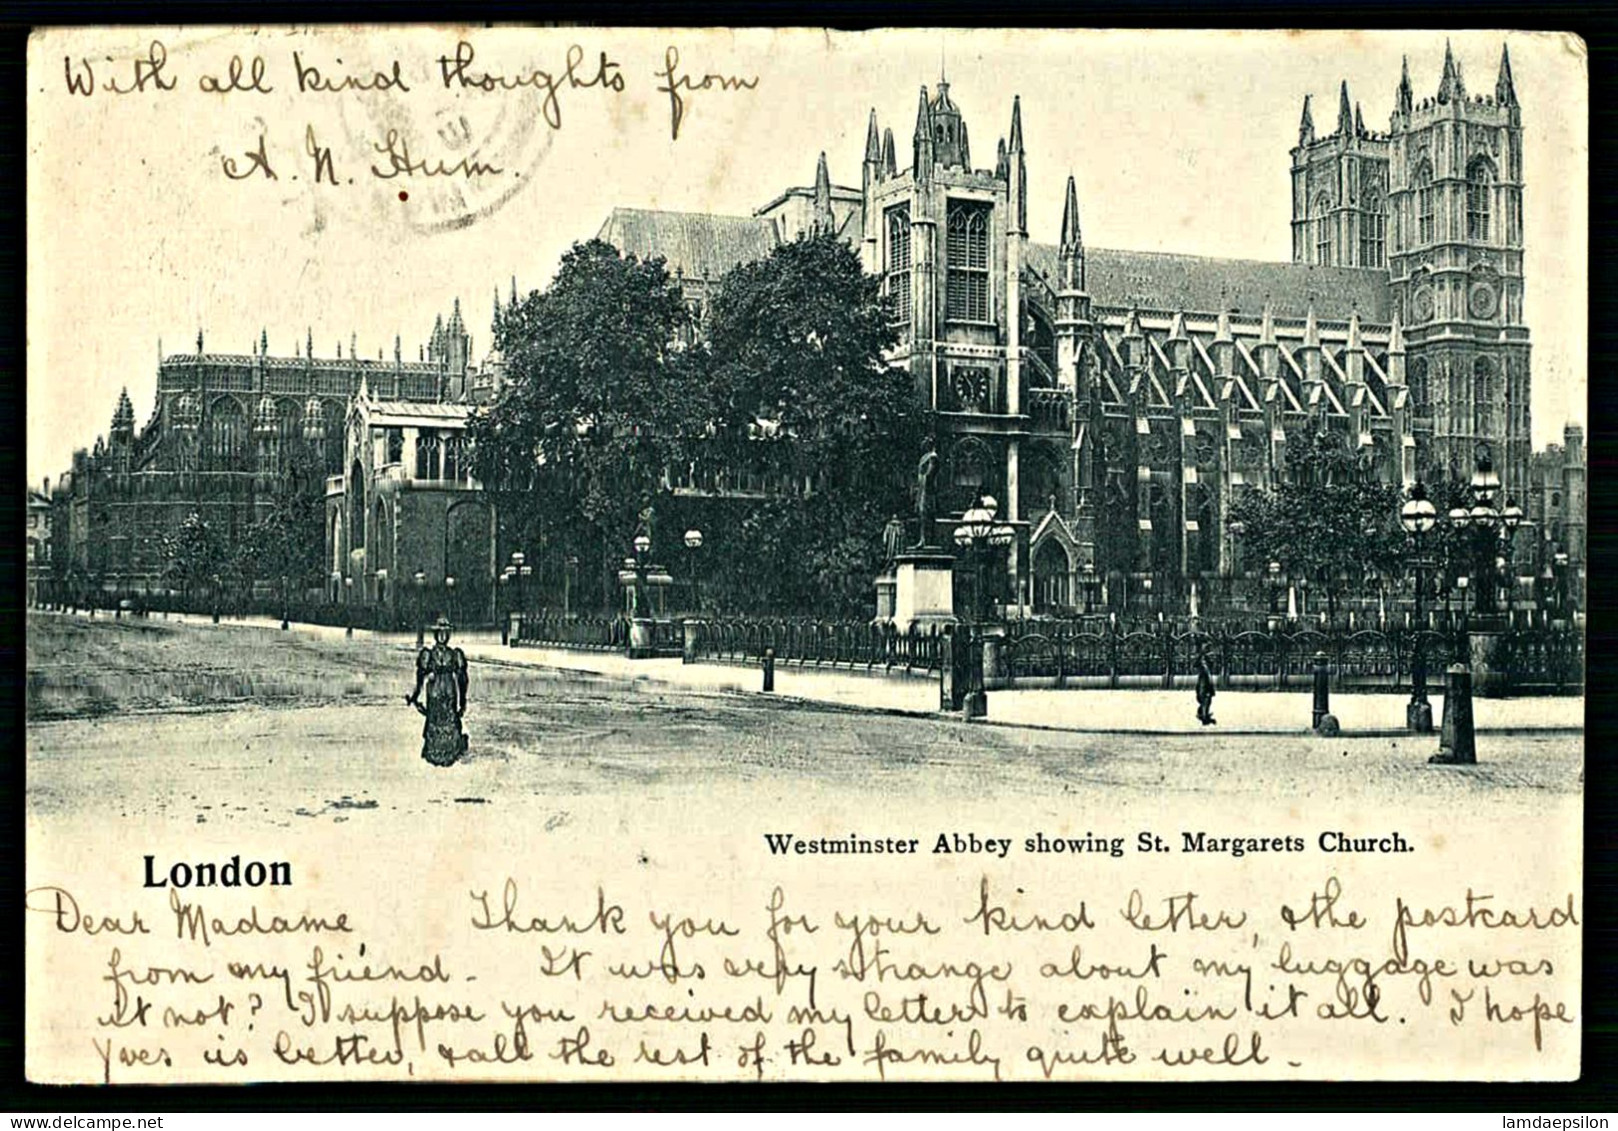 With all kind thoughts from
A. N. Hum.
Westminster Abbey showing St. Margarets Church.
London
Dear Madame, Thank you for your kind letter, & the postcard
from my friend - It was very strange about my luggage was
it not? I suppose you received my letter to explain it all. I hope
Yves is better, & all the rest of the family quite well -
www.delcampe.net
lamdaepsilon